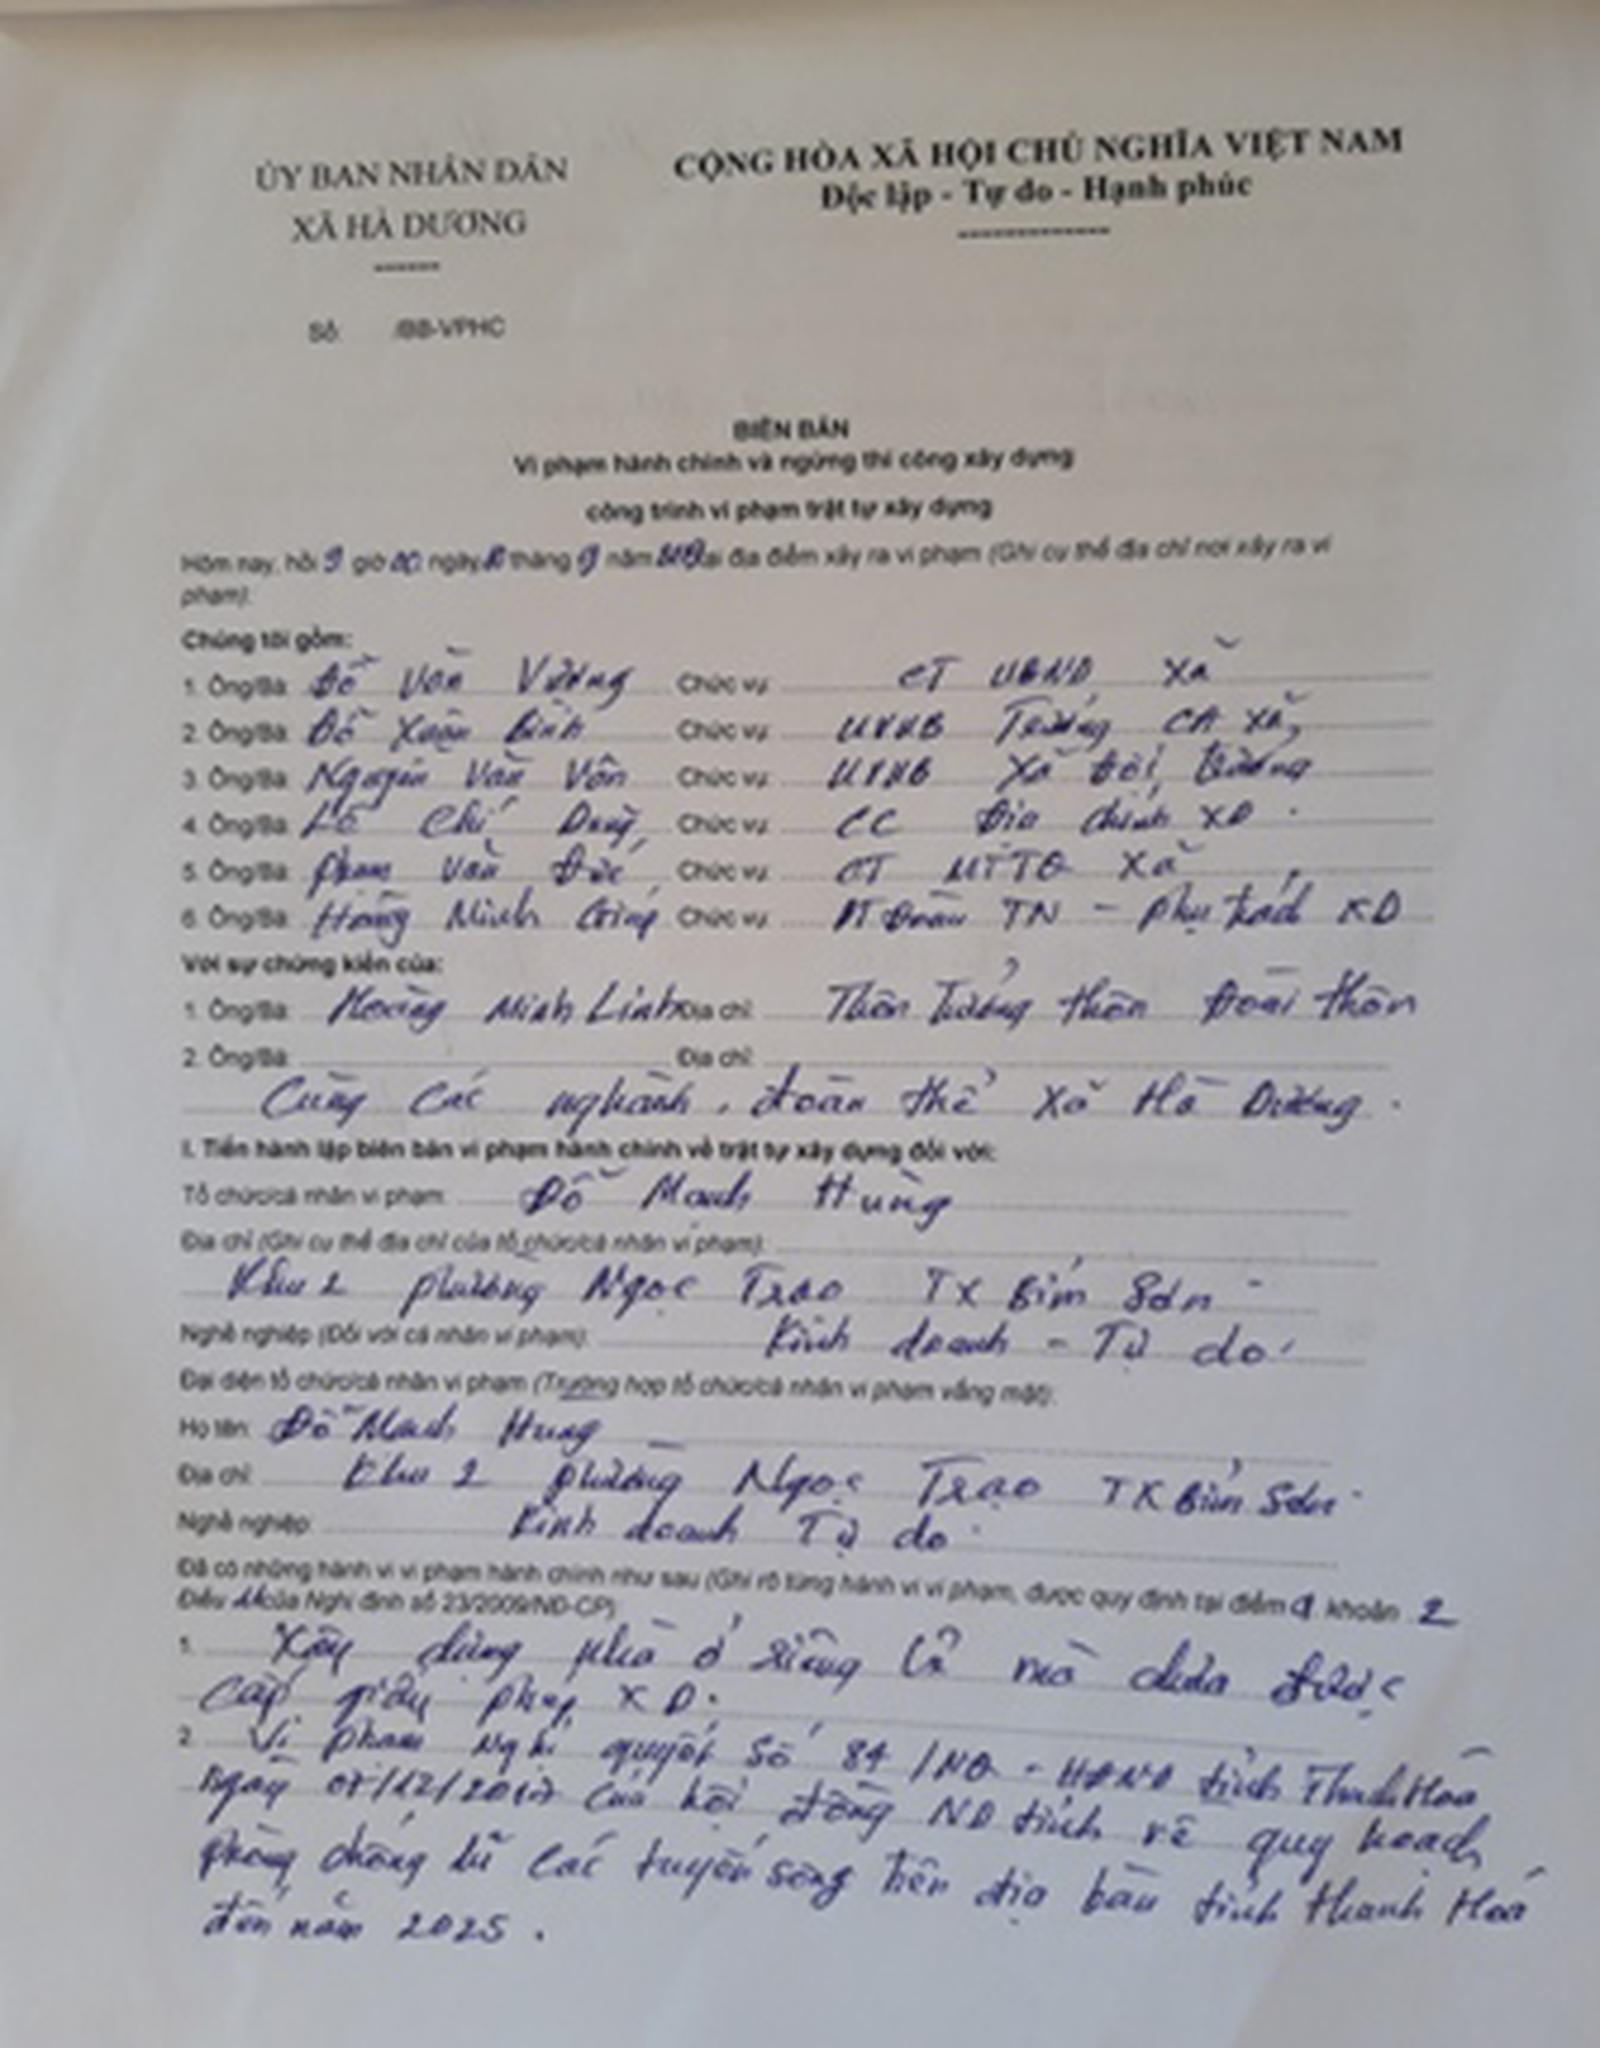 ỦY BAN NHÂN DÂN
XÃ HÀ DƯƠNG
CỘNG HÒA XÃ HỘI CHỦ NGHĨA VIỆT NAM
Độc lập - Tự do - Hạnh phúc
Số: /BB-VPHC
BIÊN BẢN
Vi phạm hành chính và ngừng thi công xây dựng
công trình vi phạm trật tự xây dựng
Hôm nay, hồi 9 giờ 00 ngày tháng năm tại địa điểm xảy ra vi phạm (Ghi cụ thể địa chỉ nơi xảy ra vi
phạm):
Chúng tôi gồm:
1. Ông/Bà: Đỗ Văn Vương Chức vụ: CT UBND xã
2. Ông/Bà: Đỗ Xuân Bình Chức vụ: UVUB Trưởng CA xã
3. Ông/Bà: Nguyễn Văn Vân Chức vụ: UVUB xã đội trưởng
4. Ông/Bà: Lê Chí Chức vụ: CC Địa chính XD
5. Ông/Bà: Phạm Văn Đức Chức vụ: CT MTTQ xã
6. Ông/Bà: Hoàng Minh Chức vụ: BT Đoàn TN - phụ trách XD
Với sự chứng kiến của:
1. Ông/Bà: Hoàng Minh Linh Địa chỉ: Thôn Trưởng thôn Đoài thôn
2. Ông/Bà: Địa chỉ:
Cùng các nghành, đoàn thể xã Hà Dương.
I. Tiến hành lập biên bản vi phạm hành chính về trật tự xây dựng đối với:
Tổ chức/cá nhân vi phạm: Đỗ Mạnh Hùng
Địa chỉ (Ghi cụ thể địa chỉ của tổ chức/cá nhân vi phạm):
Khu 2 phường Ngọc Trạo TX Bỉm Sơn
Nghề nghiệp (Đối với cá nhân vi phạm): Kinh doanh - Tự do
Đại diện tổ chức/cá nhân vi phạm (Trường hợp tổ chức/cá nhân vi phạm vắng mặt):
Họ tên: Đỗ Mạnh Hùng
Địa chỉ: Khu 2 phường Ngọc Trạo TX Bỉm Sơn
Nghề nghiệp: Kinh doanh Tự do
Đã có những hành vi vi phạm hành chính như sau (Ghi rõ từng hành vi vi phạm, được quy định tại điểm a khoản 2
Điều của Nghị định số 23/2009/NĐ-CP)
1. Xây dựng nhà ở riêng lẻ mà chưa được
cấp giấy phép XD.
2. Vi phạm Nghị quyết số 84/NQ - HĐND tỉnh Thanh Hóa
ngày 07/12/2017 của hội đồng ND tỉnh về quy hoạch
phòng chống lũ các tuyến sông trên địa bàn tỉnh Thanh Hóa
đến năm 2025.